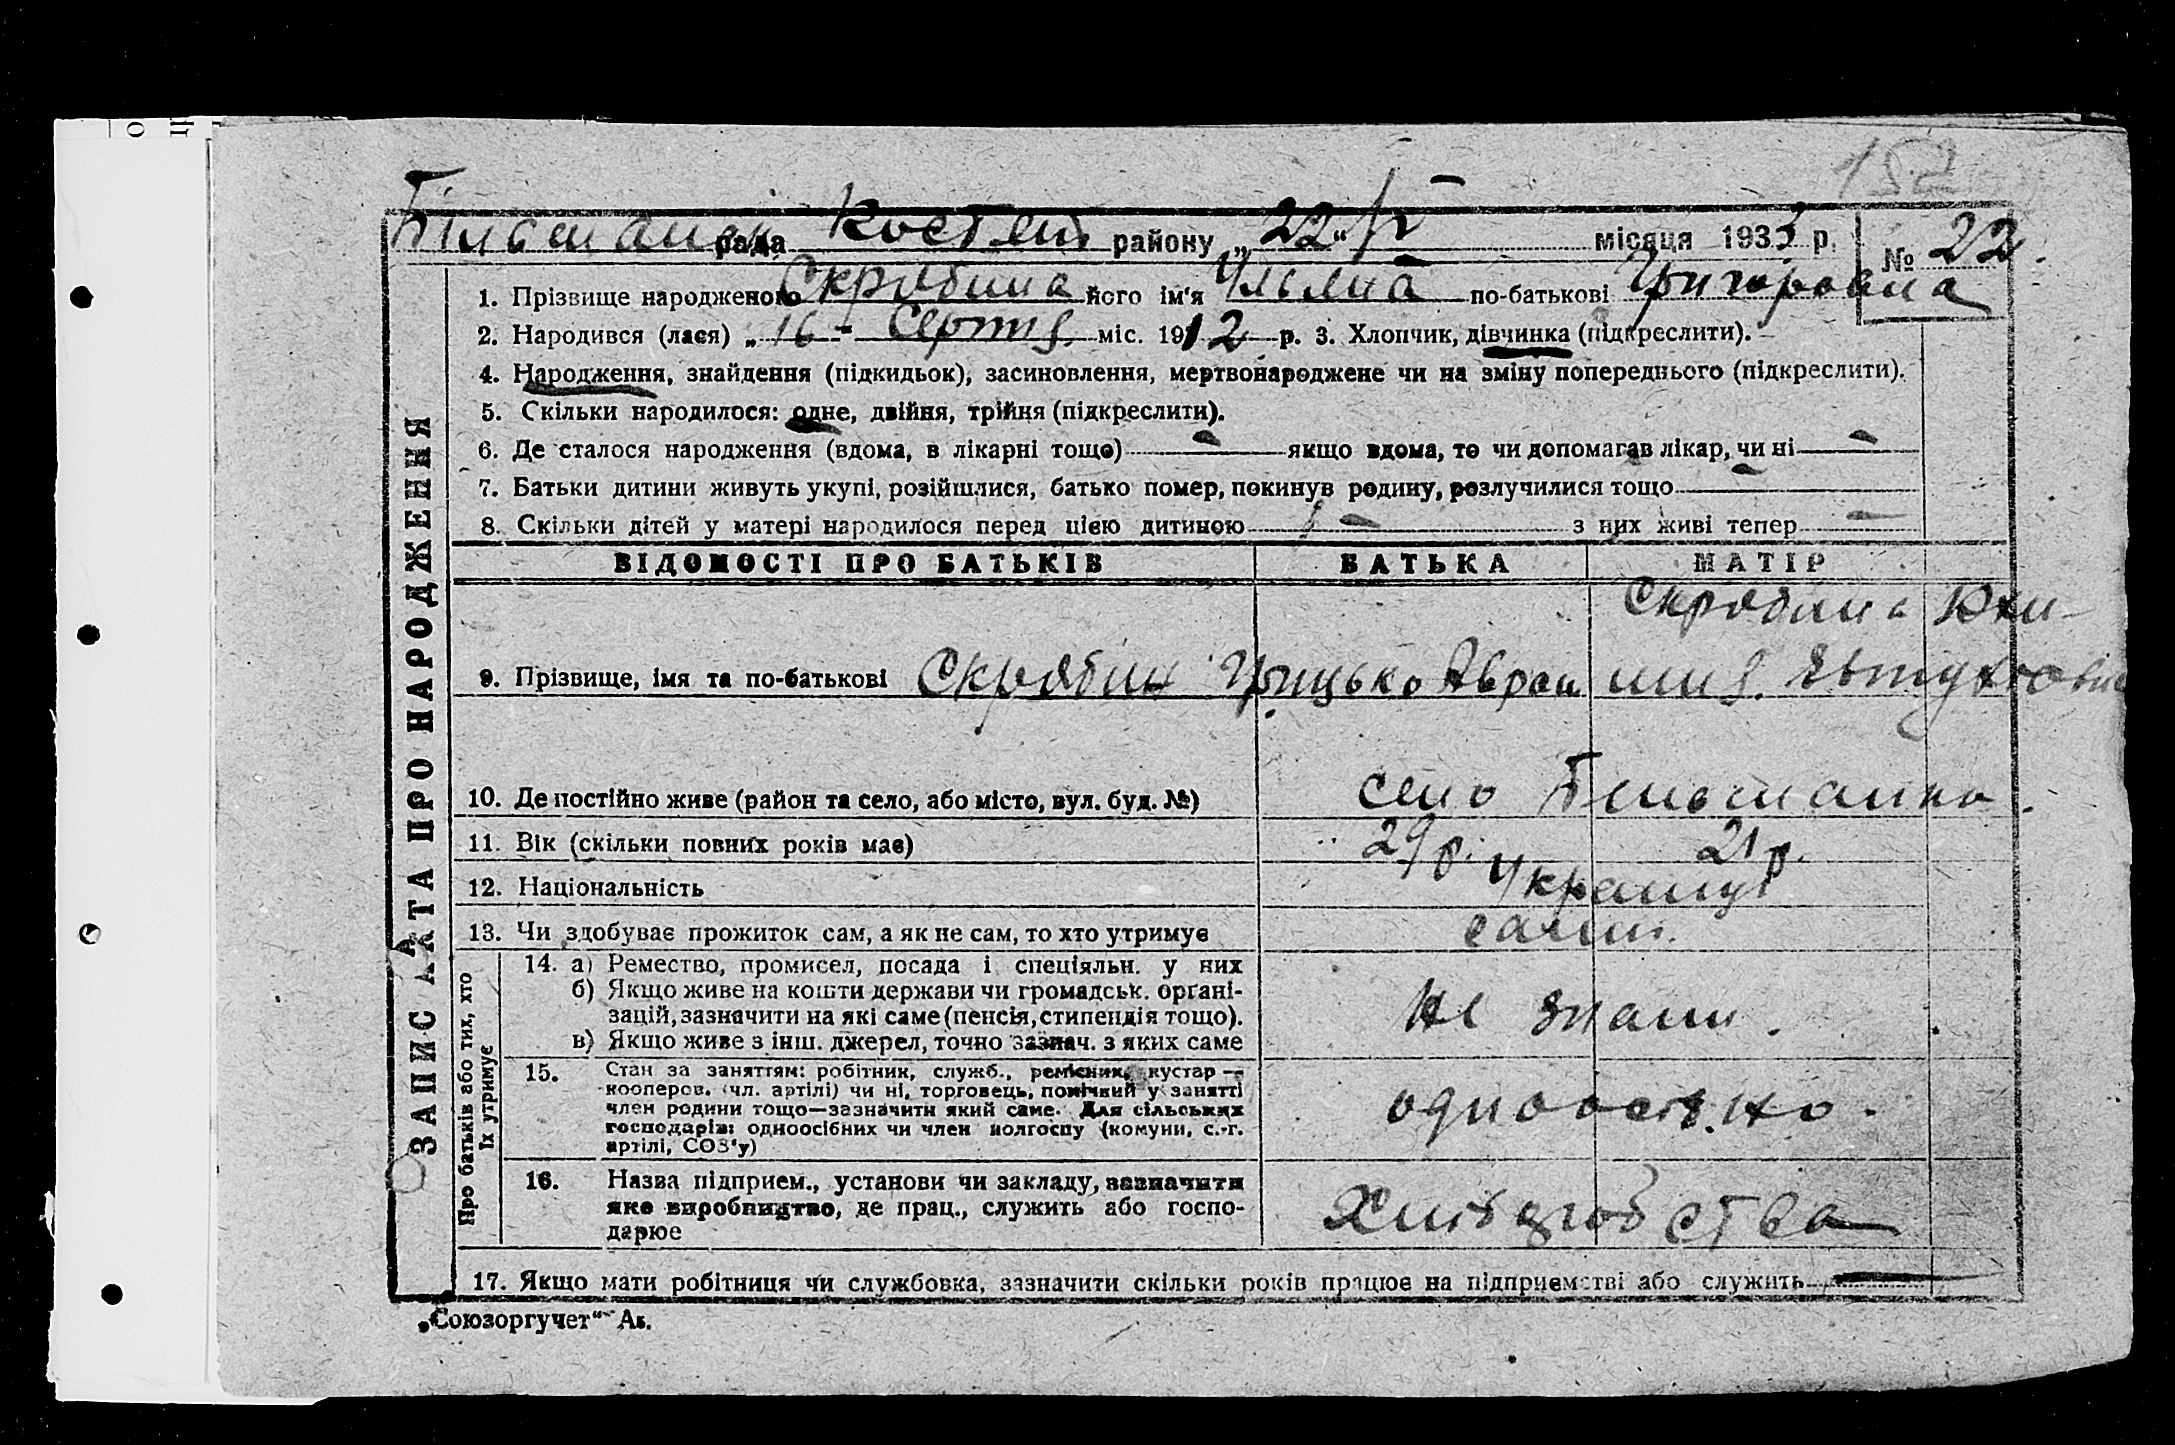 152
Більманськ рада Костян. району „22“ IV місяця 1933 р. № 22.
1. Прізвище народженого Скрябина його ім'я Ульяна по-батькові Григоровна
2. Народився (лася) „16 - Серпня міс. 1912 р. 3. Хлопчик, дівчинка (підкреслити).
4. Народження, знайдення (підкидьок), засиновлення, мертвонароджене чи на зміну попереднього (підкреслити).
5. Скільки народилося: одне, двійня, трійня (підкреслити).
6. Де сталося народження (вдома, в лікарні тощо) – якщо вдома, то чи допомагав лікар, чи ні –
7. Батьки дитини живуть укупі, розійшлися, батько помер, покинув родину, розлучилися тощо –
8. Скільки дітей у матері народилося перед цією дитиною – з них живі тепер –
ВІДОМОСТІ ПРО БАТЬКІВ БАТЬКА МАТІР
Скрябина
9. Прізвище, імя та по-батькові Скрябин Грицько Аврам
10. Де постійно живе (район та село, або місто, вул. буд. №) село Більманка.
11. Вік (скільки повних років має) 29 р. 21 р.
12. Національність Украінці
13. Чи здобуває прожиток сам, а як не сам, то хто утримує сами.
14. а) Ремество, промисел, посада і спеціяльн. у них
б) Якщо живе на кошти держави чи громадськ. органі-
зацій, зазначити на які саме (пенсія, стипендія тощо).
в) Якщо живе з інш. джерел, точно зазнач. з яких саме
не знати.
15. Стан за заняттям: робітник, служб., ремісник, кустар —
кооперов. (чл. артілі) чи ні, торговець, помічний у занятті
член родини тощо—зазначити який саме. Для сільських
господарів: одноосібних чи член колгоспу (комуни, с.-г.
артілі, СОЗ'у)
одноосібно.
16. Назва підприєм., установи чи закладу, зазначити
яке виробництво, де прац., служить або госпо-
дарює
17. Якщо мати робітниця чи службовка, зазначити скільки років працює на підприємстві або служить
„Союзоргучет“ Ак.
ЗАПИС АКТА ПРО НАРОДЖЕННЯ
Про батьків або тих, хто
їх утримує